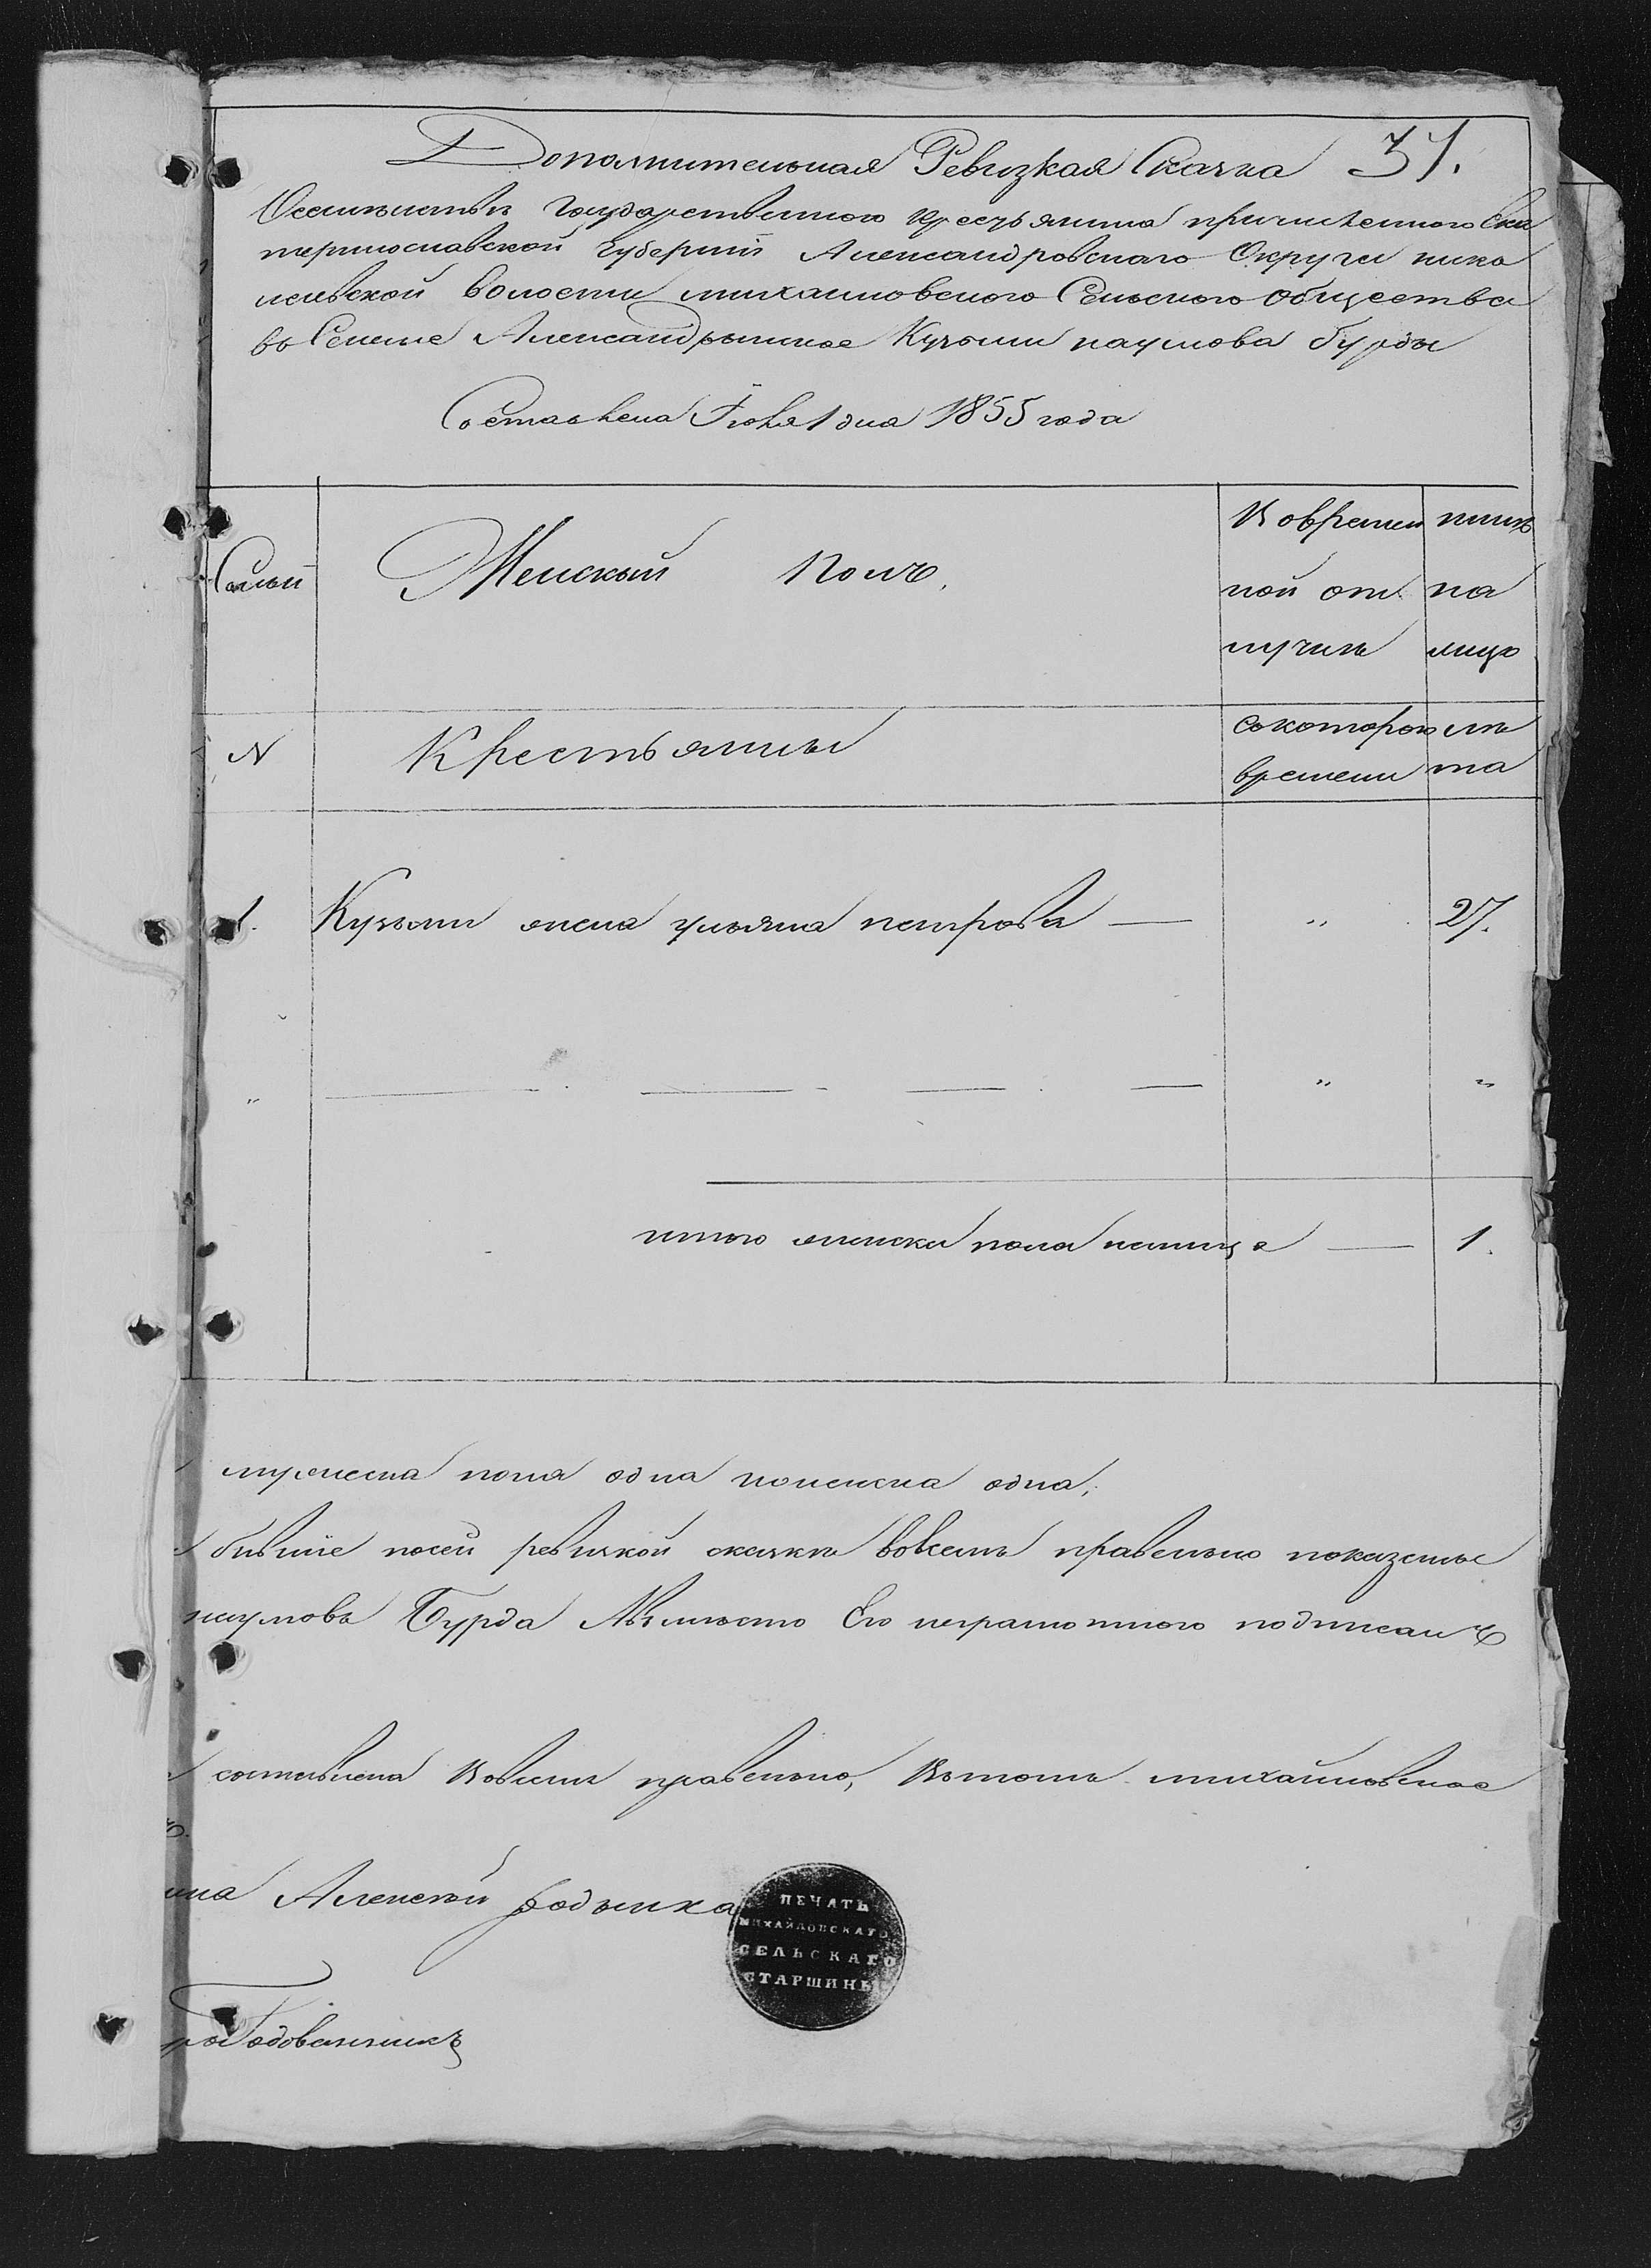 Дополнительная Ревизкая Сказка 37.
Осемействѣ Государственного крестьянина причисленного Ека
теринославской Губернiи Александровскаго Округа нико
лаевской волости михайловского Сельского общества
въ Селение Александрынское Кузьми наумова бурды
Составлена Iюня 1 дня 1855 года
Семьи
Женский Полъ.
Вовремен
ной от
лучкѣ
нынѣ
на
лицо
N
Крестьянны
сокоторого
времени
лѣ
та
1. Кузьми жена ульяна петрова — " 27.
" — — — — " "
итого женска пола налицо — 1.
мужеска пола одна иоженска одна,
бившiе посей ревизкой сказкѣ вовсемъ правельно показаные
наумовъ Бурда Авместо Его неграмотного подписалъ
составлена вовсемъ правельно, Вътомъ михайловское
ина Алексей родынка
ПЕЧАТЬ
МИХАЙЛОВСКАГО
СЕЛЬСКАГО
СТАРШИНЫ
Годованникъ